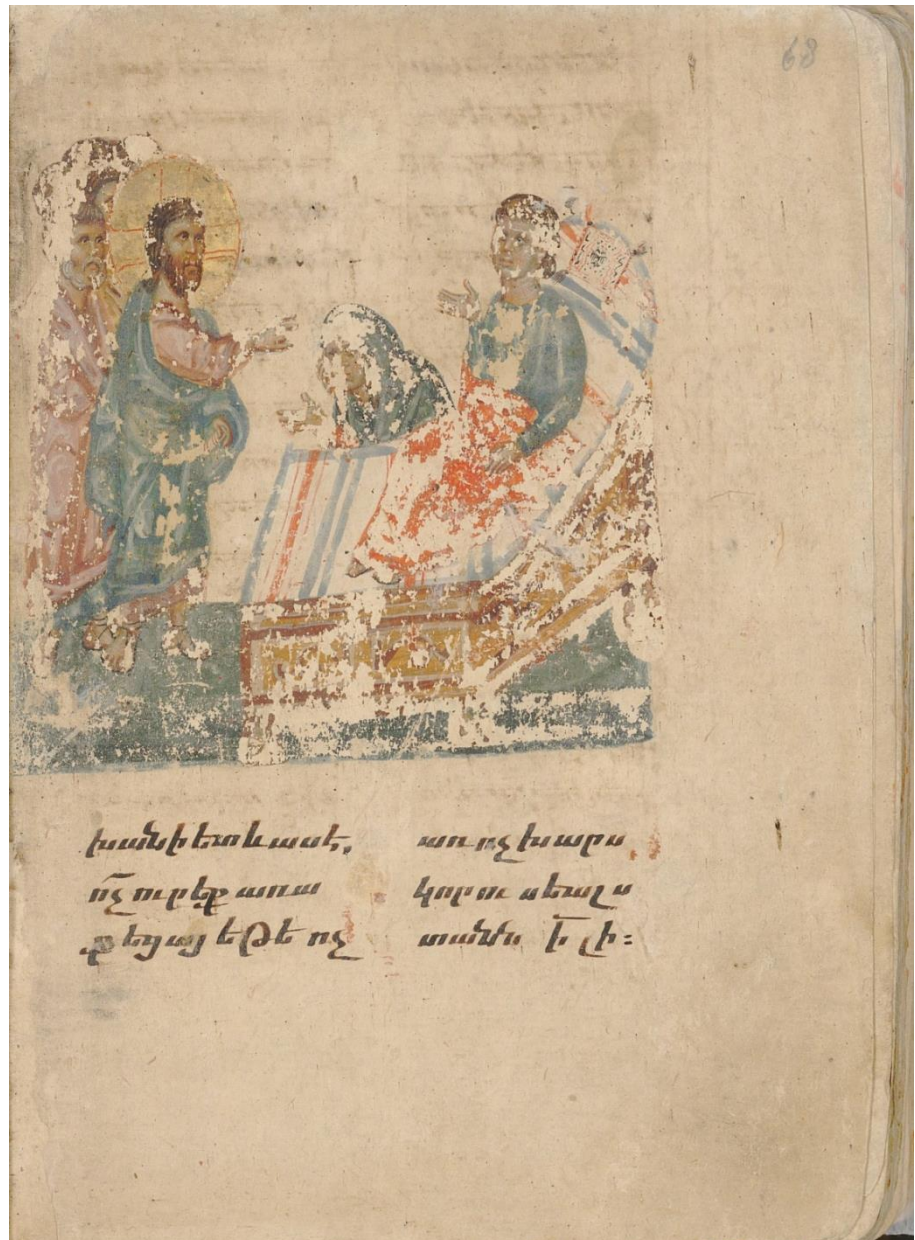 68
խանի ետ և ասէ,
ո՛չ ուրեք առա
քեցայ եթե ոչ
առ ոչխարս
կորուսեալս
տանն ի՟լի։